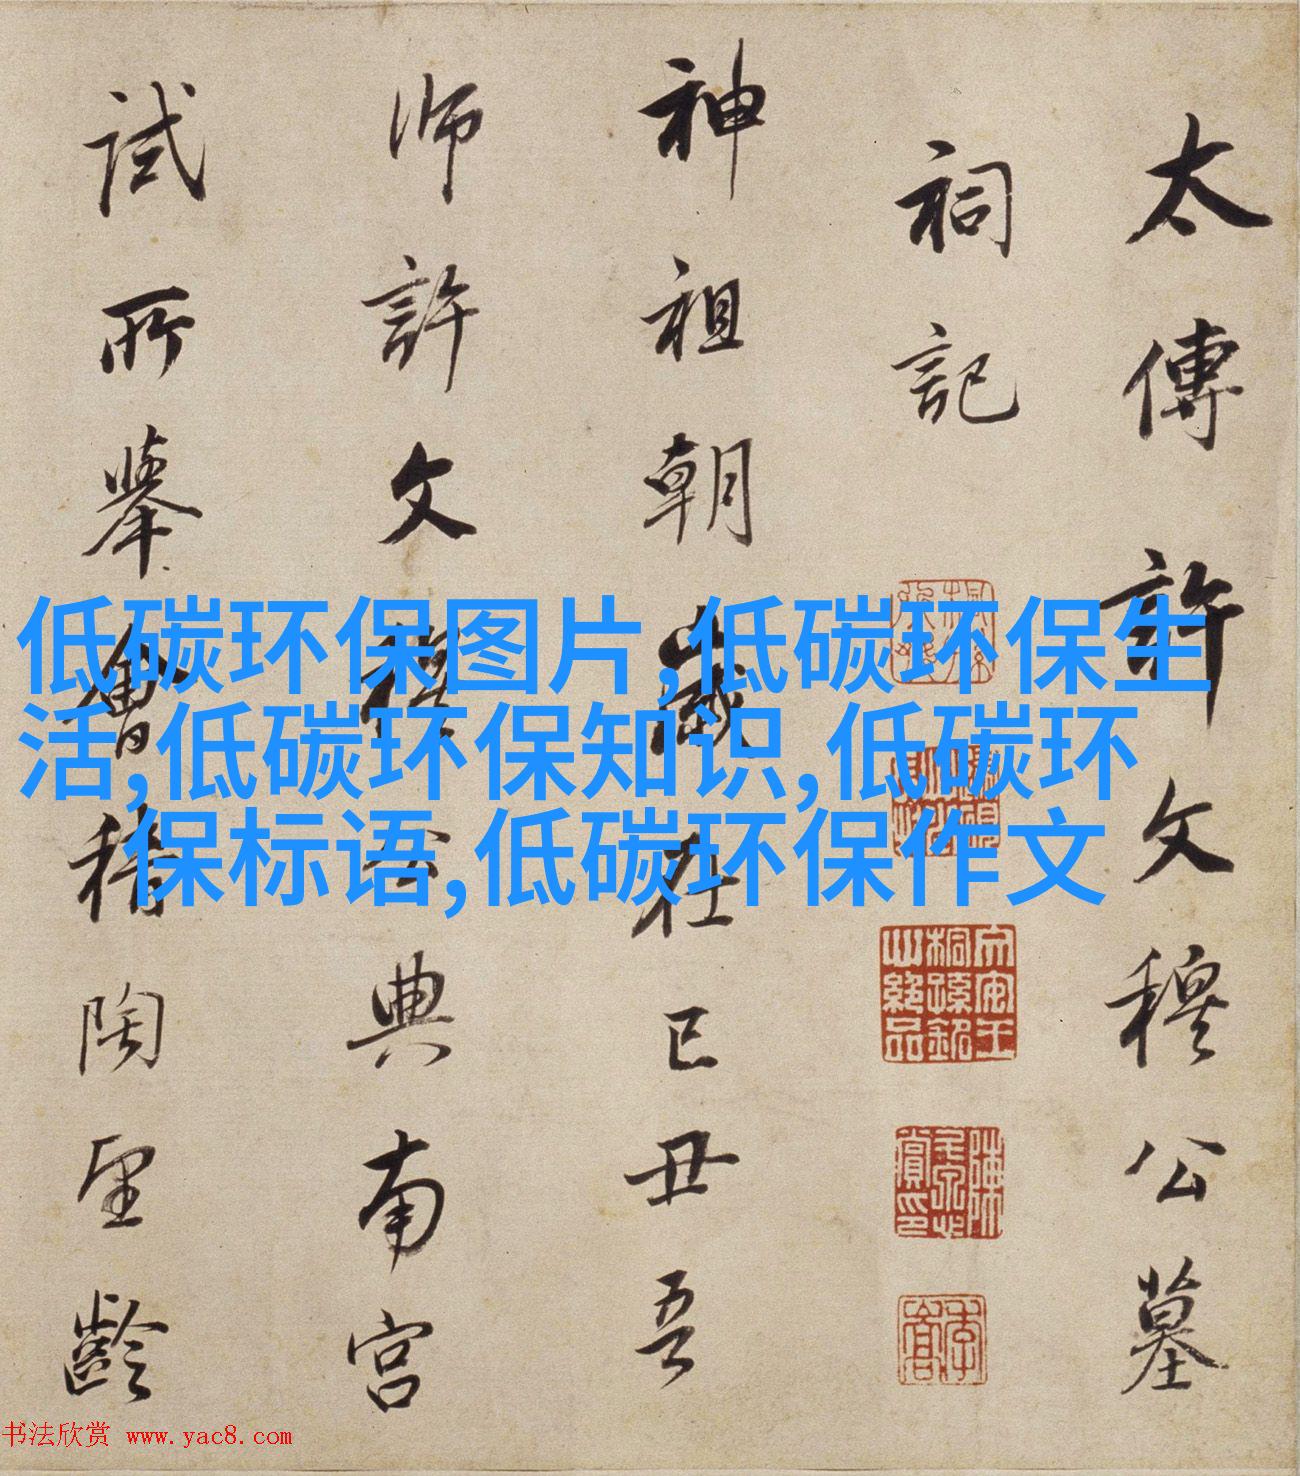 太傅許文穆公墓
祠記
神祖朝歲在已丑吾
師許文穆公典南宮
試所舉會稽陶望齡
低碳环保图片,低碳环保生
活,低碳环保知识,低碳环
保标语,低碳环保作文
书法欣赏 www.yac8.com